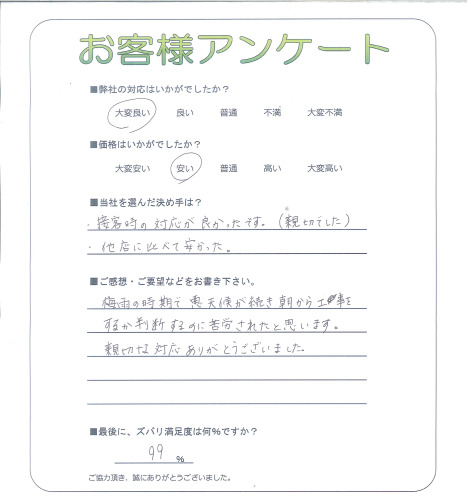 お客様アンケート
■弊社の対応はいかがでしたか？
大変良い 良い 普通 不満 大変不満
■価格はいかがでしたか？
大変安い 安い 普通 高い 大変高い
■当社を選んだ決め手は？
・接客時の対応が良かったです。（親切でした）
・他店に比べて安かった。
■ご感想・ご要望などをお書き下さい。
梅雨の時期で悪天候が続き朝から工事を
するか判断するのに苦労されたと思います。
親切な対応ありがとうございました。
■最後に、ズバリ満足度は何％ですか？
99 ％
ご協力頂き、誠にありがとうございました。